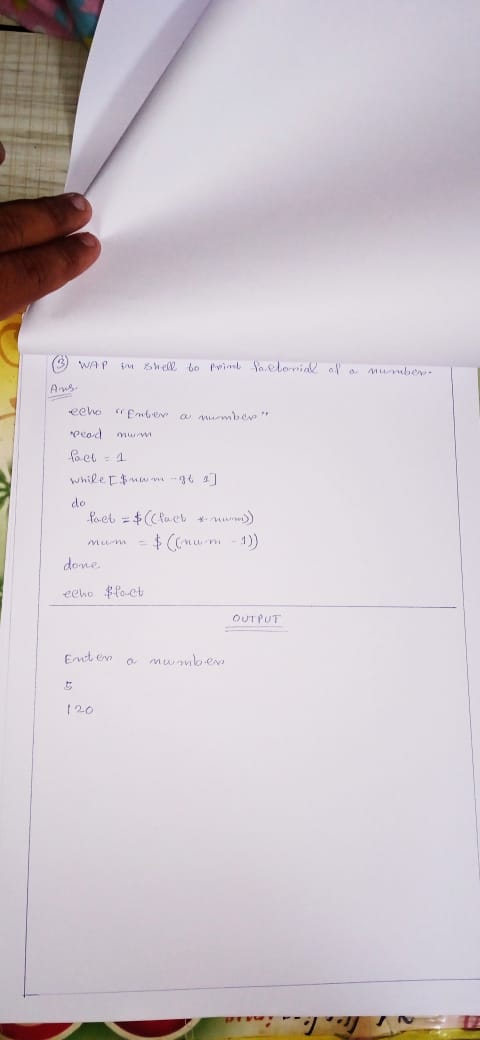 ③ WAP in shell to print factorial of a number.
Ans.
echo "Enter a number"
read num
fact = 1
while [ $num -gt 1]
do
fact = $((fact * num))
num = $((num - 1))
done
echo $fact
OUTPUT
Enter a number
5
120